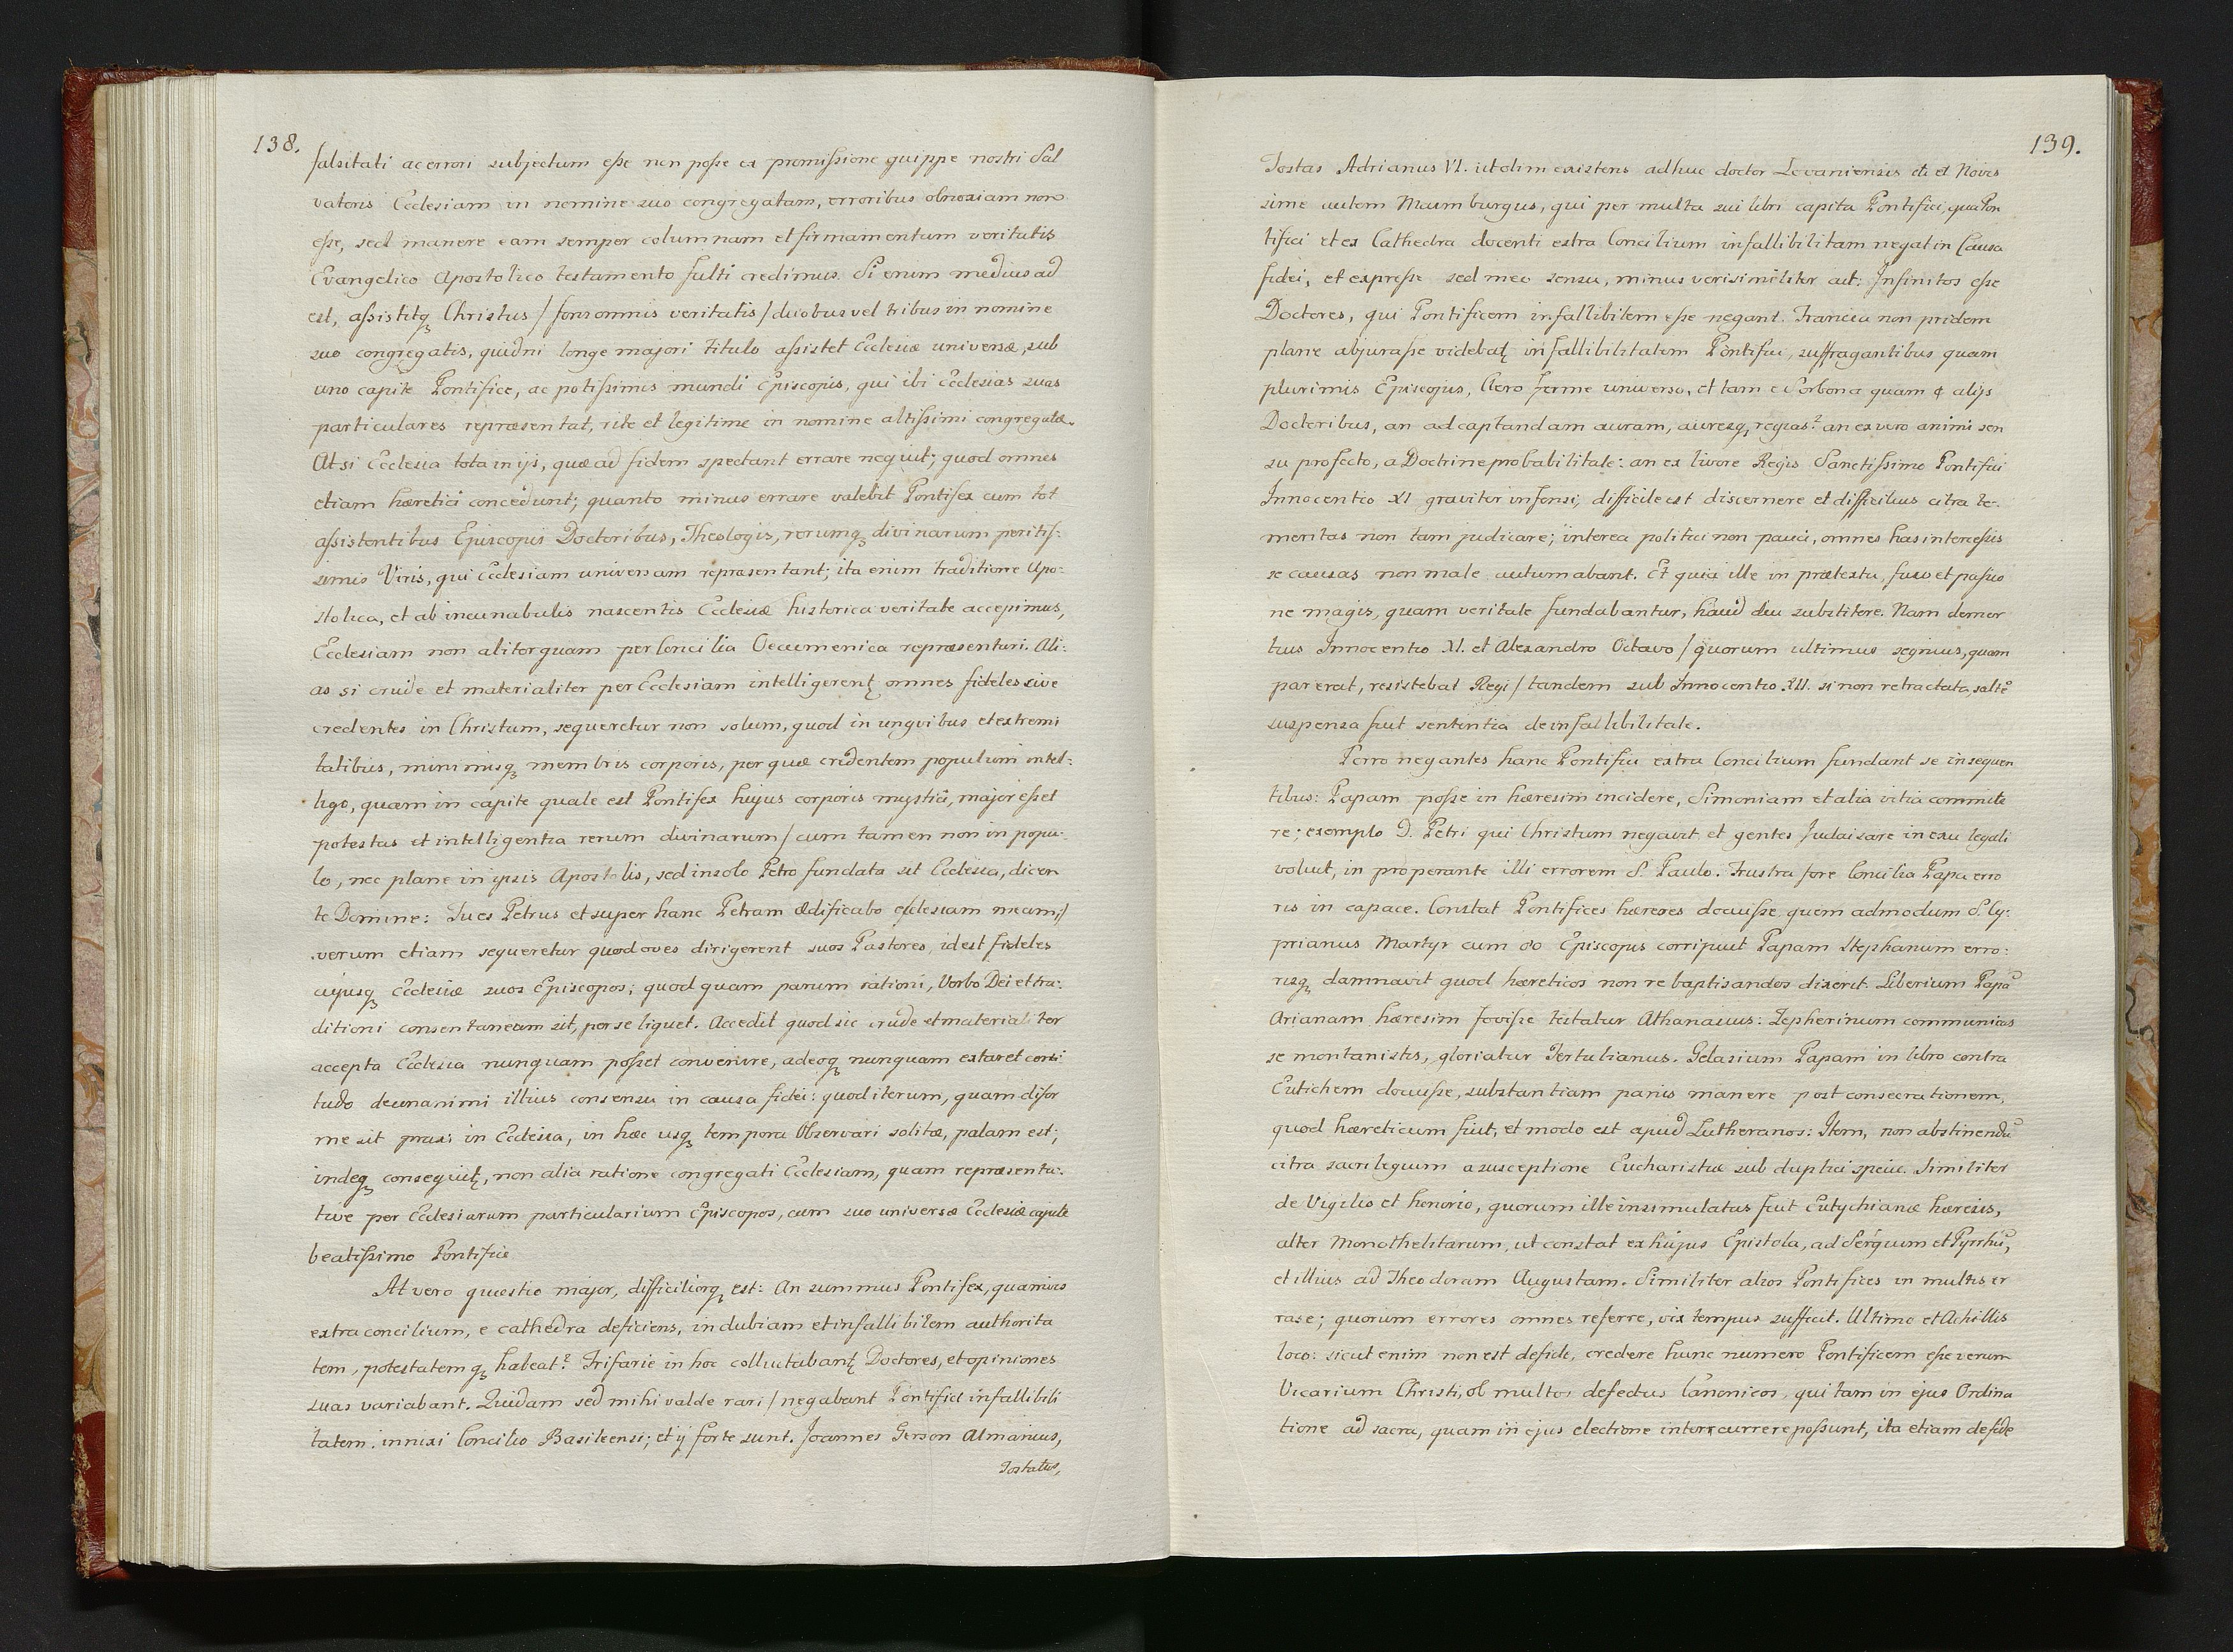 138.
falsitati ac errori subjectum eſse non poſse ex promiſsione quippe nostri Sal
vatoris Ecclesiam in nomine suo congregatam, erroribus obnoxiam non
eſse, sed manere eam semper columnam et firmamentum veritatis
Evangelico Apostolico testamento fulti credimus. Si enim medius ad
est, aſsistitqꝫ Christus / fons omnis veritatis / duobus vel tribus in nomine
suo congregatis, quidni longe majori titulo aſsistet Ecclesiæ universæ, sub
uno capite Pontifice, ac potiſsimis mundi Episcopis, qui ibi Ecclesias suas
particulares repræsentat, rite et legitime in nomine altiſsimi congregatæ.
At si Ecclesia tota in ijs, quæ ad fidem spectant errare nequit; quod omnes
etiam hæretici concedunt; quanto minus errare valebit Pontifex cum tot
aſsistentibus Episcopis Doctoribus, Theologis, rerumqꝫ divinarum peritiſ:
simis Viris, qui Ecclesiam universam repræsentant; ita enim traditione Apo:
stolica, et ab incunabulis nascentis Ecclesiæ historica veritate accepimus,
Ecclesiam non aliter quam per Concilia Oecumenica repræsentari. Ali:
as si crude et materialiter per Ecclesiam intelligerentꝭ omnes fideles sive
credentes in Christum, sequeretur non solum, quod in ungvibus et extremi
tatibus, minimisqꝫ membris corporis, per quæ credentem populum intel:
ligo, quam in capite quale est Pontifex hujus corporis mystici, major eſset
potestas et intelligentia rerum divinarum / cum tamen non in popu:
lo, nec plane in ipsis Apostolis, sed in solo Petro fundata sit Ecclesia, dicen
te Domine: Tu es Petrus et super hanc Petram ædificabo ecclesiam meam; /
verum etiam sequeretur quod oves dirigerent suos Pastores, id est fideles
cujusqꝫ Ecclesiæ suos Episcopos; quod quam parum rationi, Verbo Dei et tra:
ditioni consentaneum sit, per se liquet. Accedit quod sic crude et materialiter
accepta Ecclesia nunquam poſset convenire, adeoqꝫ nunquam extaret certi
tudo de unanimi illius consensu in causa fidei: quod iterum, quam difor
me sit praxi in Ecclesia, in hæc usqꝫ tempora Observari solitæ, palam est;
indeqꝫ conseqvitꝭ, non alia ratione congregati Ecclesiam, quam repræsenta:
tive per Ecclesiarum particularium Episcopos, cum suo universæ Ecclesiæ capite
beatiſsimo Pontifice
At vero quæstio major, difficiliorqꝫ est: An summus Pontifex, quamvis
extra concilium, e cathedra deficiens, indubiam et infallibilem authorita
tem, potestatemqꝫ habeat? Trifarie in hoc colluctabantꝭ Doctores, et opiniones
suas variabant. Quidam sed mihi valde rari / negabant Pontifici infallibili
tatem. innixi Concilio Basileensi; et ij forte sunt. Joannes Gerson Almainus,
Tostatus,
139.
Tostas Adrianus VI. ut olim existens adhuc doctor Lovaniensis et et Novis
sime autem Maimburgus, qui per multa sui libri capita Pontifici, qua Pon
tifici et ex Cathedra docenti extra Concilium infallibilitam negat in Causa
fidei, et expreſse sed meo sensu, minus verisimiliter ait: Infinitos eſse
Doctores, qui Pontificem infallibilem eſse negant. Francia non pridem
plane abjuraſse videbatꝭ infallibilitatem Pontifici, suffragantibus quam
plurimis Episcopis, Clero ferme universo, et tam e Sorbona quam e alijs
Doctoribus, an ad captandam auram, auresqꝫ regias? an ex vero animi sen
su profecto, a Doctrine probabilitate: an ex livore Regis Sanctiſsimo Pontifici
Innocentio XI graviter infensi, difficile est discernere et difficilius citra te:
meritas non tam judicare; interea politici non pauci, omnes has interceſsis
se causas non male autumabant. Et quia ille in prætextu, fuco et paſsio
ne magis, quam veritate fundabantur, haud diu substitere. Nam demor
tuo Innocentio XI. et Alexandro Octavo / quorum ultimus segnius, quam
par erat, resistebat Regi / tandem sub Innocentio XII. si non retractata, saltē
suspensa fuit sententia de infallibilitate.
Porro negantes hanc Pontifici extra Concilium fundant se in sequen
tibus: Papam poſse in hæresim incidere, Simoniam et alia vitia commite
re; exemplo D. Petri qui Christum negavit et gentes Judaisare in esu legali
voluit, in properante illi errorem S. Paulo. Frustra fore Concilia Papa erro
ris in capace. Constat Pontifices hæreses docuiſse quem admodum S. Cy:
prianus Martyr cum 80 Episcopis corripuit Papam Stephanum erro:
risqꝫ damnavit quod hæreticos non re baptisandos dixerit. Liberium Papā
Arianam hæresim foviſse testatur Athanasius: Zepherinum communicas
se montanistis, gloriatur Tertulianus. Gelasium Papam in libro contra
Eutichem docuiſse, substantiam panis manere post consecrationem,
quod hæreticum fuit, et modo est apud Lutheranos: Item, non abstinendū
citra sacrilegium a susceptione Eucharistiæ sub duplici specie. Similiter
de Vigilio et honorio, quorum ille insimulatus fuit Eutychianæ hæresis,
alter Monothelitarum, ut constat ex hujus Epistola, ad Sergium et Pyrrhū,
et illius ad Theodoram Augustam. Similiter alios Pontifices in multis er
rase; quorum errores omnes referre, vix tempus sufficit. Ultimo et Achillis
loco: sicut enim non est defide, credere hunc numero Pontificem eſse verum
Vicarium Christi, ob multos defectus Canonicos, qui tam in ejus Ordina
tione ad sacra, quam in ejus electione interrcurrere poſsunt, ita etiam de fide